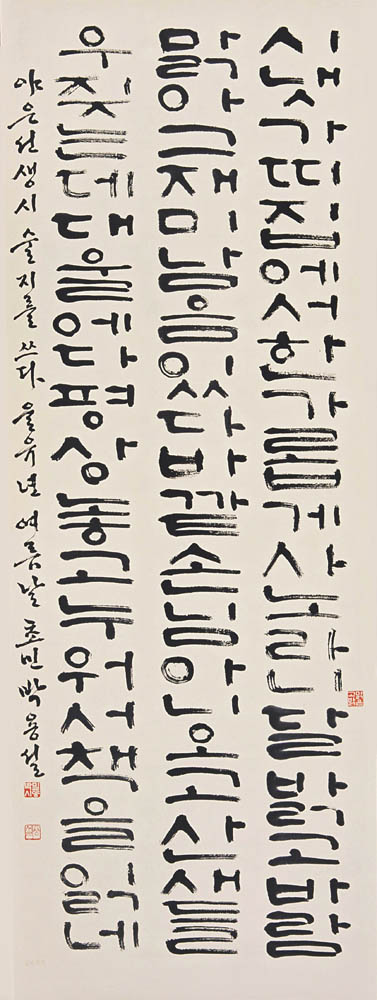 시냇가띠집에서한가롭게사노라니달밝고바람
맑아그재미남음있다바깥손님아니오고산새들
우짖는데대울에다평상놓고누워서책을읽네
야은선생시 술지를 쓰다 을유년 여름날 초민 박용설